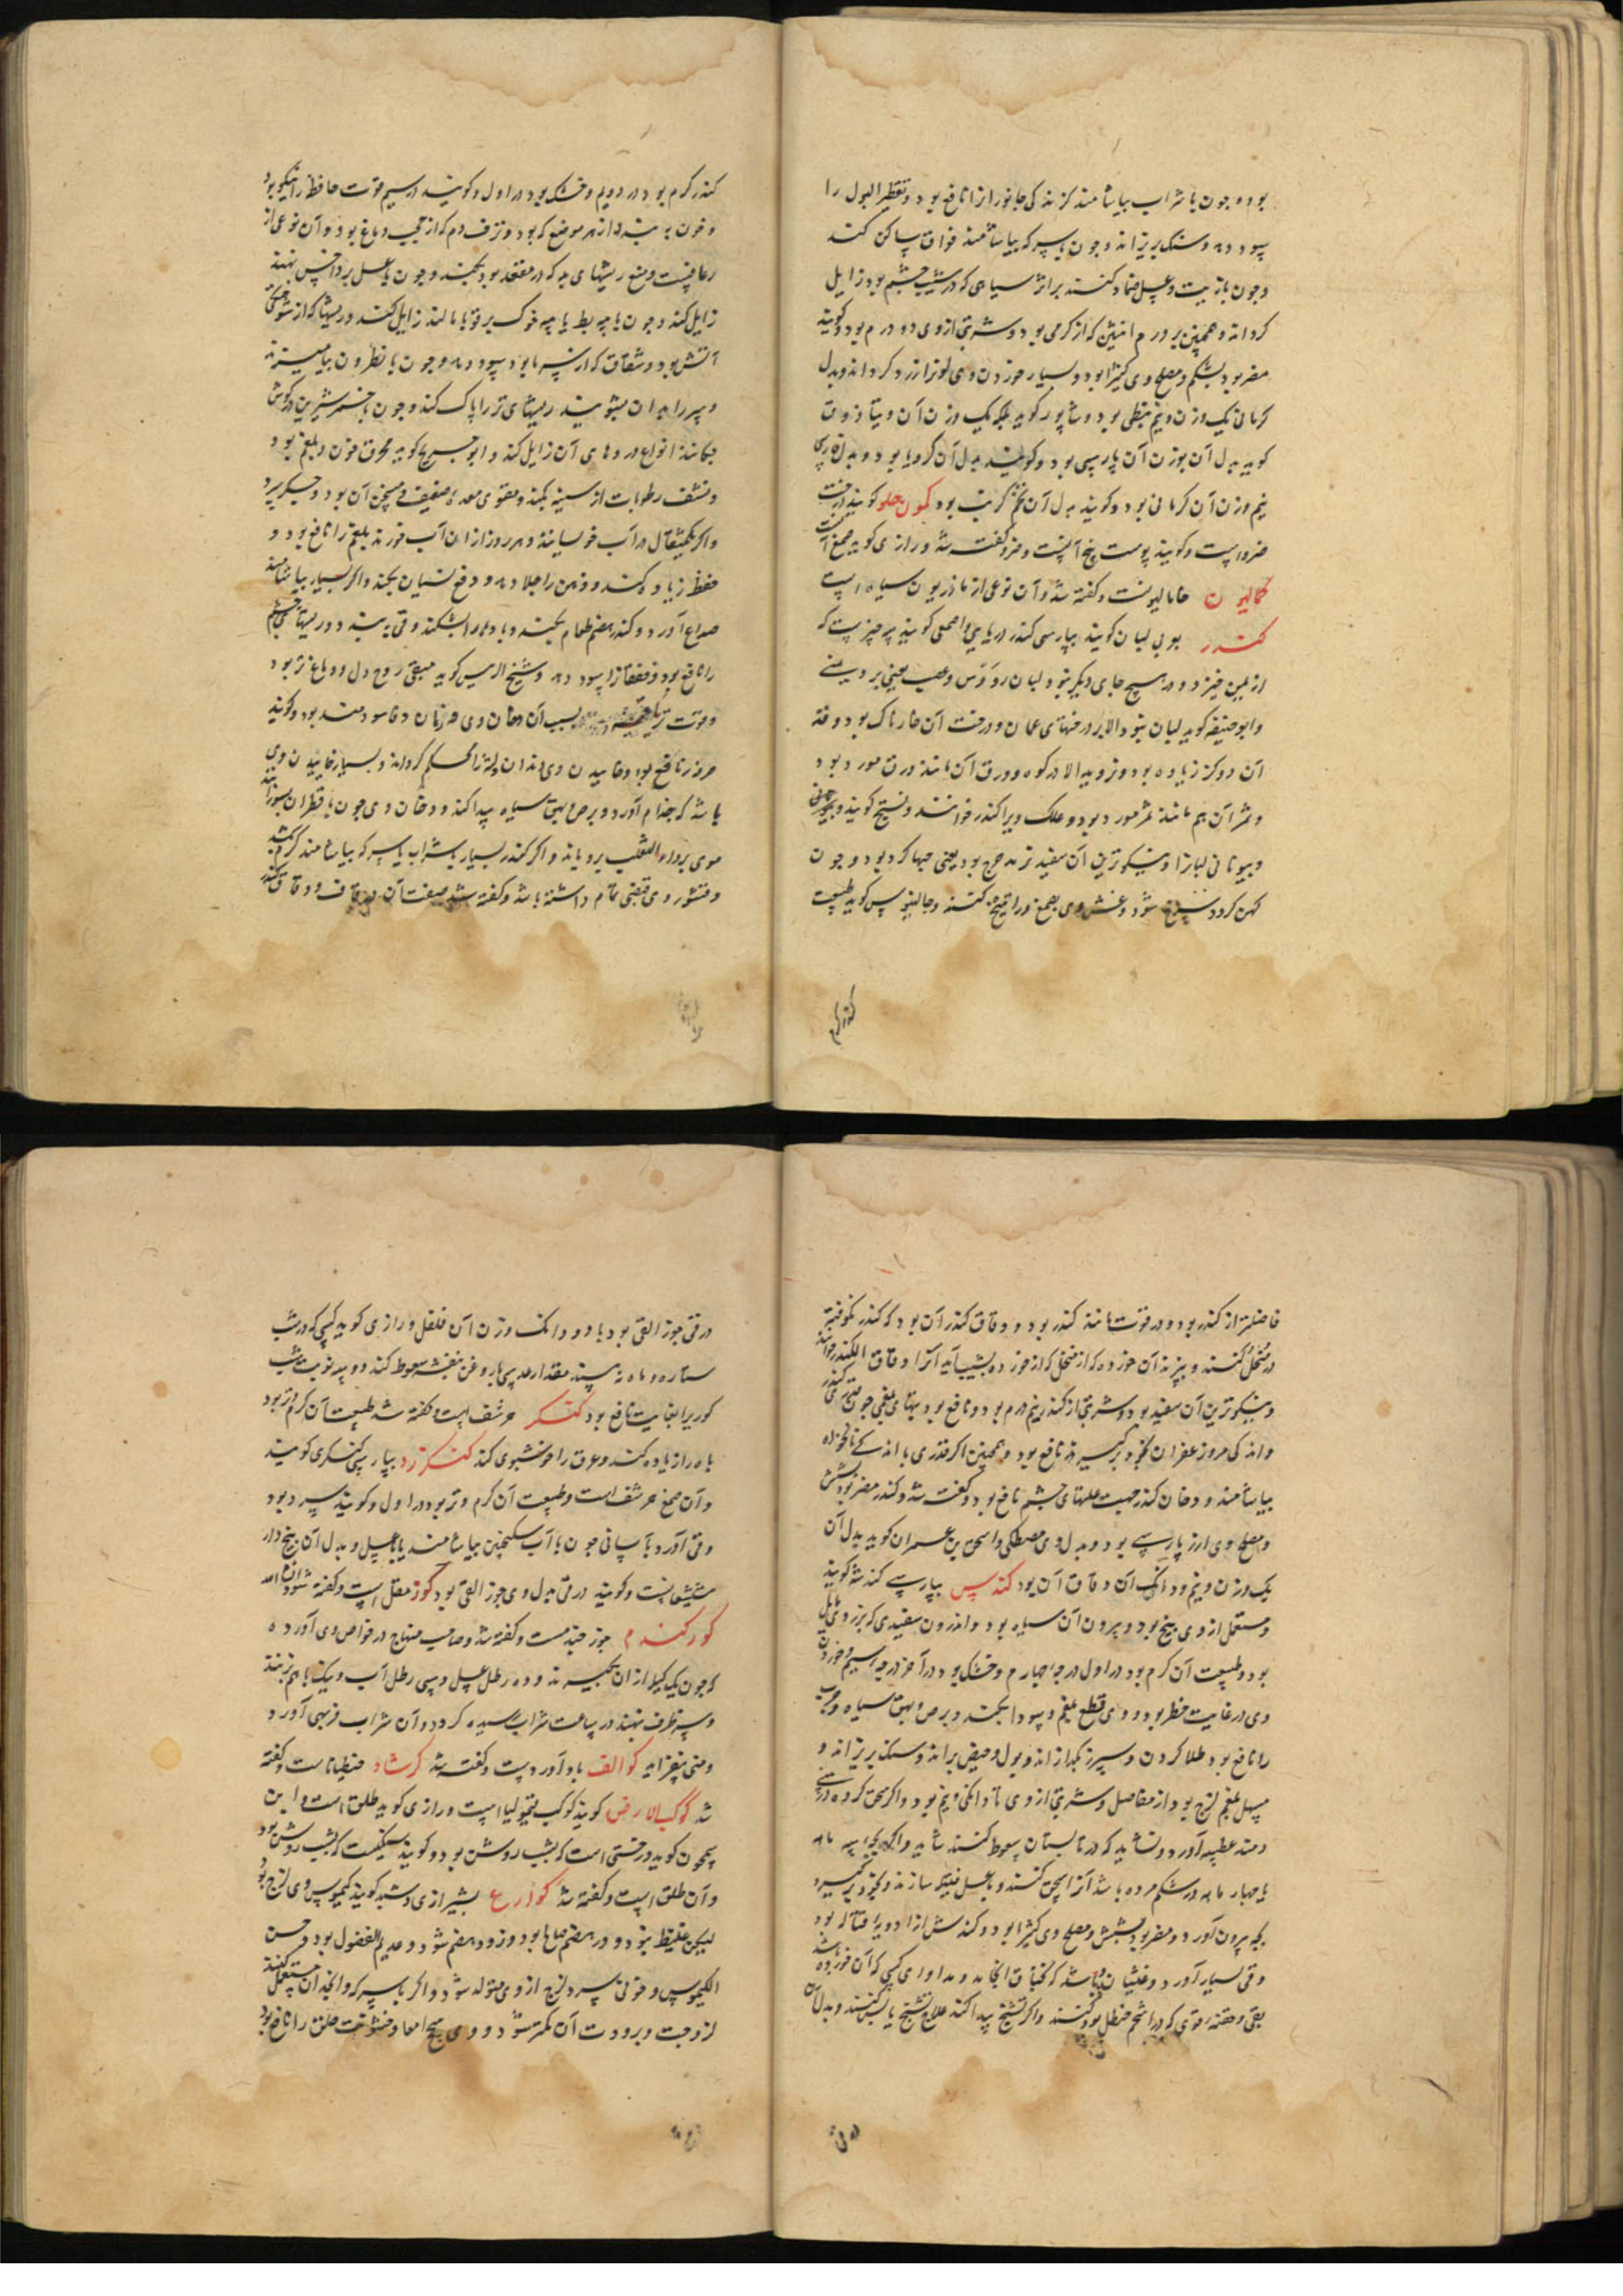 بود و چون با شراب بیاشامند کزندکی جانورانرا نافع بود و تقطیر البول را
سود دهد و سنک بریزاند و چون با سرکه بیاشامند فواق ساکن کند
و چون با زیت و عسل ضماد کنند بر اثر سیاهی که در شیب چشم بود زایل
کرداند و همچنین بر ورم انثیین که از کرمی بود و شربتی ازوی دو درم بود و کویند
مضر بود بشکم و مصلح وی کتیرا بود و بسیار خوردن وی لون را زرد کرداند و بدل
کرمانی یک وزن و نیم نبطی بود و شاپور کوید بلکه یک وزن آن و ینیا ذوق
کوید بدل آن بوزن آن پارسی بود و کویند بدل آن کرویا بود و بدل پارسی
نیم وزن آن کرمانی بود و کویند بدل آن تخم کرنب بود کمون حلو کویند درخت
ضرو است و کویند پوست بیخ آنست و ضرو کفته شد و رازی کوید صمغ آنست
کمالیون خامالیونست و کفته شد و آن نوعی از ماذریون سیاه است
کندر بوبی لبان کویند بپارسی کندر دریایی و اصمعی کویند سه چیزست که
از یمن خیزد و در هیچ جای دیکر نبود لبان و ورس و عصب یعنی برد یمنی
و ابوحنیفه کوید لبان نبود الا بر درختهای عمان و درخت آن خارناک بود و قد
آن دو کز زیاده بود و نروید الا در کوه و ورق آن مانند ورق مورد بود
و ثمر آن هم مانند ثمر مورد بود و علک ویرا کندر خوانند و بستج کویند و
و بیونانی لبانرا و نیکوترین آن سفید نر مدحرج بود یعنی حبها کرد بود و چون
کهن کردد سرخ شود و غش وی بصمغ و راتینج کنند و جالینوس کوید طبیعت
کندر کرم
کندر کرم بود در دویم و خشک بود در اول و کویند در سیم قوت حافظه را نیکو بود
و خون ببندد از هر موضع که بود و نزف دم که از حجب دماغ بود و آن نوعی از
رعافست و منع ریشهای بد که در مقعد بود بکند و چون با عسل بر داخس نهند
زایل کند و چون با پیه بط یا پیه خوک بر قوبا مالند زایل کند و ریشها که از سوختکی
آتش بود و شقاق که از سرما بود سود دهد و چون با نطرون بیامیزند
و سر را بدان بشویند ریشهای تر را پاک کند و چون با خمر شیرین در کوش
چکانند انواع دردهای آن زایل کند و ابوجریج کوید محرق خون و بلغم بود
و نشف رطوبات از سینه بکند و مقوی معده ضعیف و مسخن آن بود و جکر سرد
و اکر یکمثقال در آب خوسانند و هر روز از آن آب خورند بلغم را نافع بود و
حفظ زیاده کند و ذهن را جلا دهد و دفع نسیان بکند و اکر بسیار بیاشامند
صداع آورد و کندر هضم طعام بکند و بادها را بشکند و قی ببندد و ریشهای چشم
را نافع بود و خفقانرا سود دهد و شیخ الرئیس کوید مقوی روح دل و دماغ بود
و قوت تریاقیت بسبب آن دخان وی در زمان وبا سودمند بود و کویند
خوردن نافع بود و خاییدن وی دندان و لثه را محکم کرداند و بسیار خاییدن وی
باشد که جذام آورد و برص و بهق سیاه پیدا کند و دخان وی چون با قطران بسوزانند
موی بر داء الثعلب برویاند و اکر کندر بسیار با شراب یا سرکه بیاشامند کشنده
و قشور وی قبضی تمام داشته باشد و کفته شد صفت آن در قاف و دقاق کندر
فاضلتر از کندر بود و در قوت مانند کندر بود و دقاق کندر آن بود که کندر کوفته
در منخل کنند و بیزند آن خورده که از منخل که از خورده بشیب آید آنرا دقاق الکندر خوانند
و نیکوترین آن سفید بود و شربتی از کندر نیم درم بود و نافع بود تبهای بلغمی چون
و اندکی مر و زعفران بخور برکیرند نافع بود و همچنین اکر قدری با اندکی نانخواه
بیاشامند و دخان کندر جهت علتهای چشم نافع بود و کفته شد و کندر مضر بود بشش
و مصلح وی ارز پارسی بود و بدل وی مصطکی و اسحق بن عمران کوید بدل آن
یک وزن و نیم و دانک آن دقاق آن بود کندس بپارسی کندشه کویند
و مستعمل ازوی بیخ بود و بیرون آن سیاه بود و اندرون سفیدی که بزردی مایل
بود و طبیعت آن کرم بود در اول درجه چهارم و خشک بود در آخر درجه سیم و خوردن
وی در غایت خطر بود و وی قطع بلغم و سودا بکند و برص و بهق سیاه و جرب
را نافع بود طلا کردن و سپرز بکدازاند و بول و حیض براند و سنک بریزاند و
مسهل بلغم لزج بود از مفاصل و شربتی ازوی تا دانکی و نیم بود و اکر سحق کرده در بینی
دمند عطسه آورد و نشاید که در تابستان سعوط کنند شاید و اکر بچه سه ماه
یا چهار ماه در شکم مرده باشد آنرا سحق کنند و با عسل فتیله سازند و بخود برکیرند
بچه بیرون آورد و مضر بود بشش و مصلح وی کتیرا بود و کندش از ادویه قتاله بود
و قی بسیار آورد و غثیان و باشد که خناق انجامد و مداوای کسی که آن خورده باشد
بقی و حقنه قوی که در آن شحم حنظل بود کنند و اکر تشنج پیدا کند علاج تشنج یابس کنند و بدل آن
در قی
در قی جوز القی بود با دو دانک وزن آن فلفل و رازی کوید کسی که در شب
ستاره و ماه نه بیند مقدار عدسی با روغن بنفشه سعوط کند دو سه نوبت شب
کوریرا بغایت نافع بود کنکر حرشف است و کفته شد طبیعت آن کرم و تر بود
باه را زیاده کند و عرق را خوشبوی کند کنکرزد بپارسی کنکری کویند
و آن صمغ حرشف است و طبیعت آن کرم و تر بود در اول و کویند سرد بود
و قی آورد بآسانی چون با آب سکنجبین بیاشامند یا با عسل و بدل آن بیخ
شبث است و کویند در قی بدل وی جوز القی بود کوز مقل است و کفته شود ان شاء الله
کورکندم جوز جندمست و کفته شد و صاحب منهاج در خواص وی آورده
که چون یک کیل از آن بکیرند و ده رطل عسل و سی رطل آب و نیک با هم زنند
و سر ظرف نهند در ساعت شراب رسیده کردد و آن شراب فربهی آورد
و منی بیفزاید کوالف باد آوردست و کفته شد کوشاد جنطیاناست و کفته
شد کوکب الارض کویند کوکب قیمولیا است و رازی کوید طلق است و ابن
سمجون کوید درختی است که بشب روشن بود و کویند سنکیست که شب روشن بود
و آن طلق است و کفته شد کوارع بشیرازی کویند کیموس وی لزج بود
لیکن غلیظ نبود و در هضم صالح بود و زود هضم شود و عدیم الفضول بود و حسن
الکیموس و خونی سرد لزج ازوی متولد شود و اکر با سرکه و انجدان مستعمل کنند
لزوجت و برودت آن کمتر شود و وی سحج امعا و خشونت حلق را نافع بود